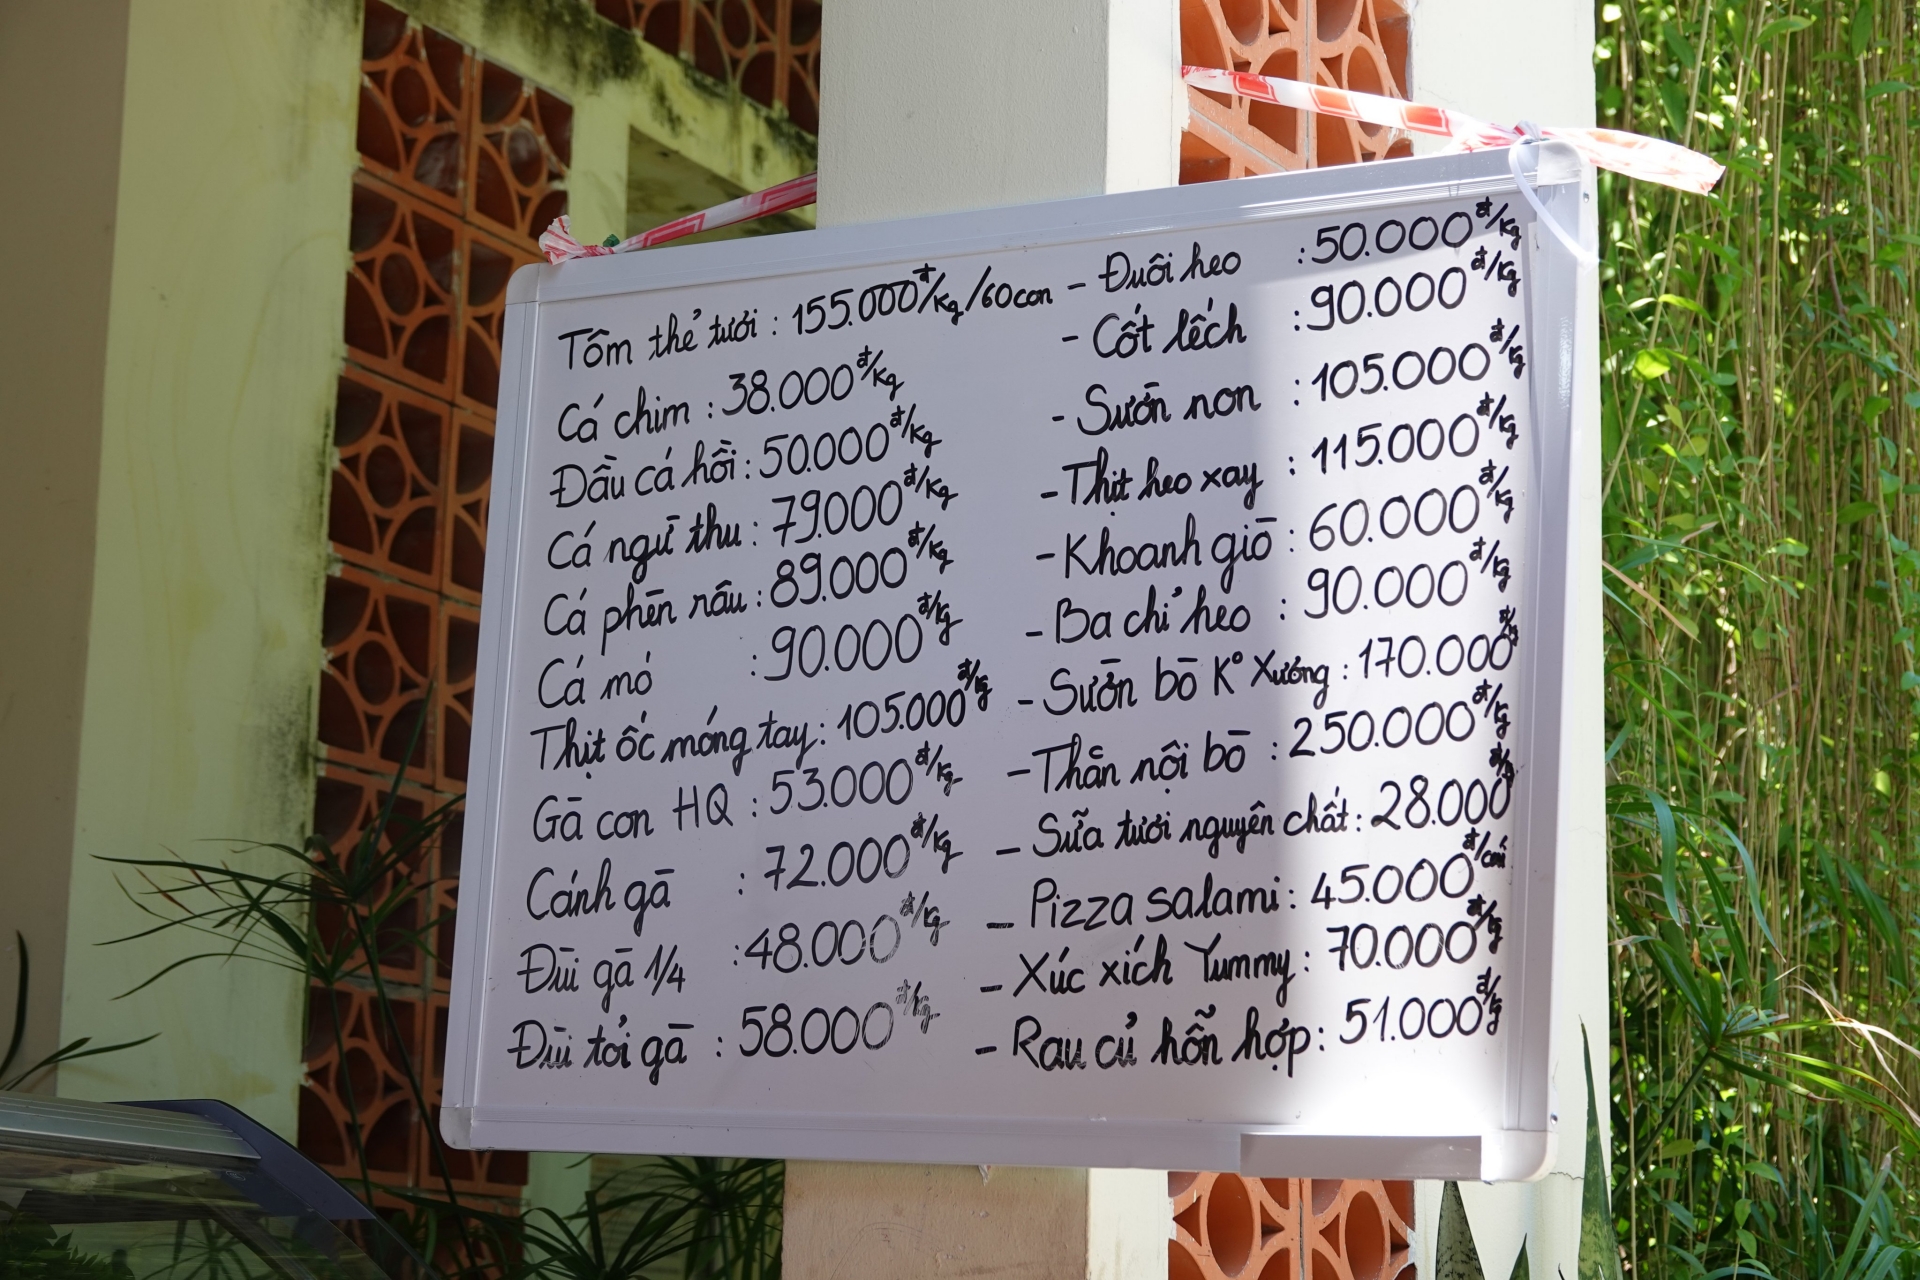 Tôm thẻ tươi : 155.000đ/kg/60con
Cá chim : 38.000đ/kg
Đầu cá hồi : 50.000đ/kg
Cá ngừ thu : 79.000đ/kg
Cá phèn râu : 89.000đ/kg
Cá mó : 90.000đ/kg
Thịt ốc móng tay : 105.000đ/kg
Gà con HQ : 53.000đ/kg
Cánh gà : 72.000đ/kg
Đùi gà 1/4 : 48.000đ/kg
Đùi tỏi gà : 58.000đ/kg
- Đuôi heo : 50.000đ/kg
- Cốt lếch : 90.000đ/kg
- Sườn non : 105.000đ/kg
- Thịt heo xay : 115.000đ/kg
- Khoanh giò : 60.000đ/kg
- Ba chỉ heo : 90.000đ/kg
- Sườn bò K° Xương : 170.000đ/kg
- Thăn nội bò : 250.000đ/kg
- Sữa tươi nguyên chất : 28.000
- Pizza salami : 45.000đ/cái
- Xúc xích Yummy : 70.000đ/kg
- Rau củ hỗn hợp : 51.000đ/kg